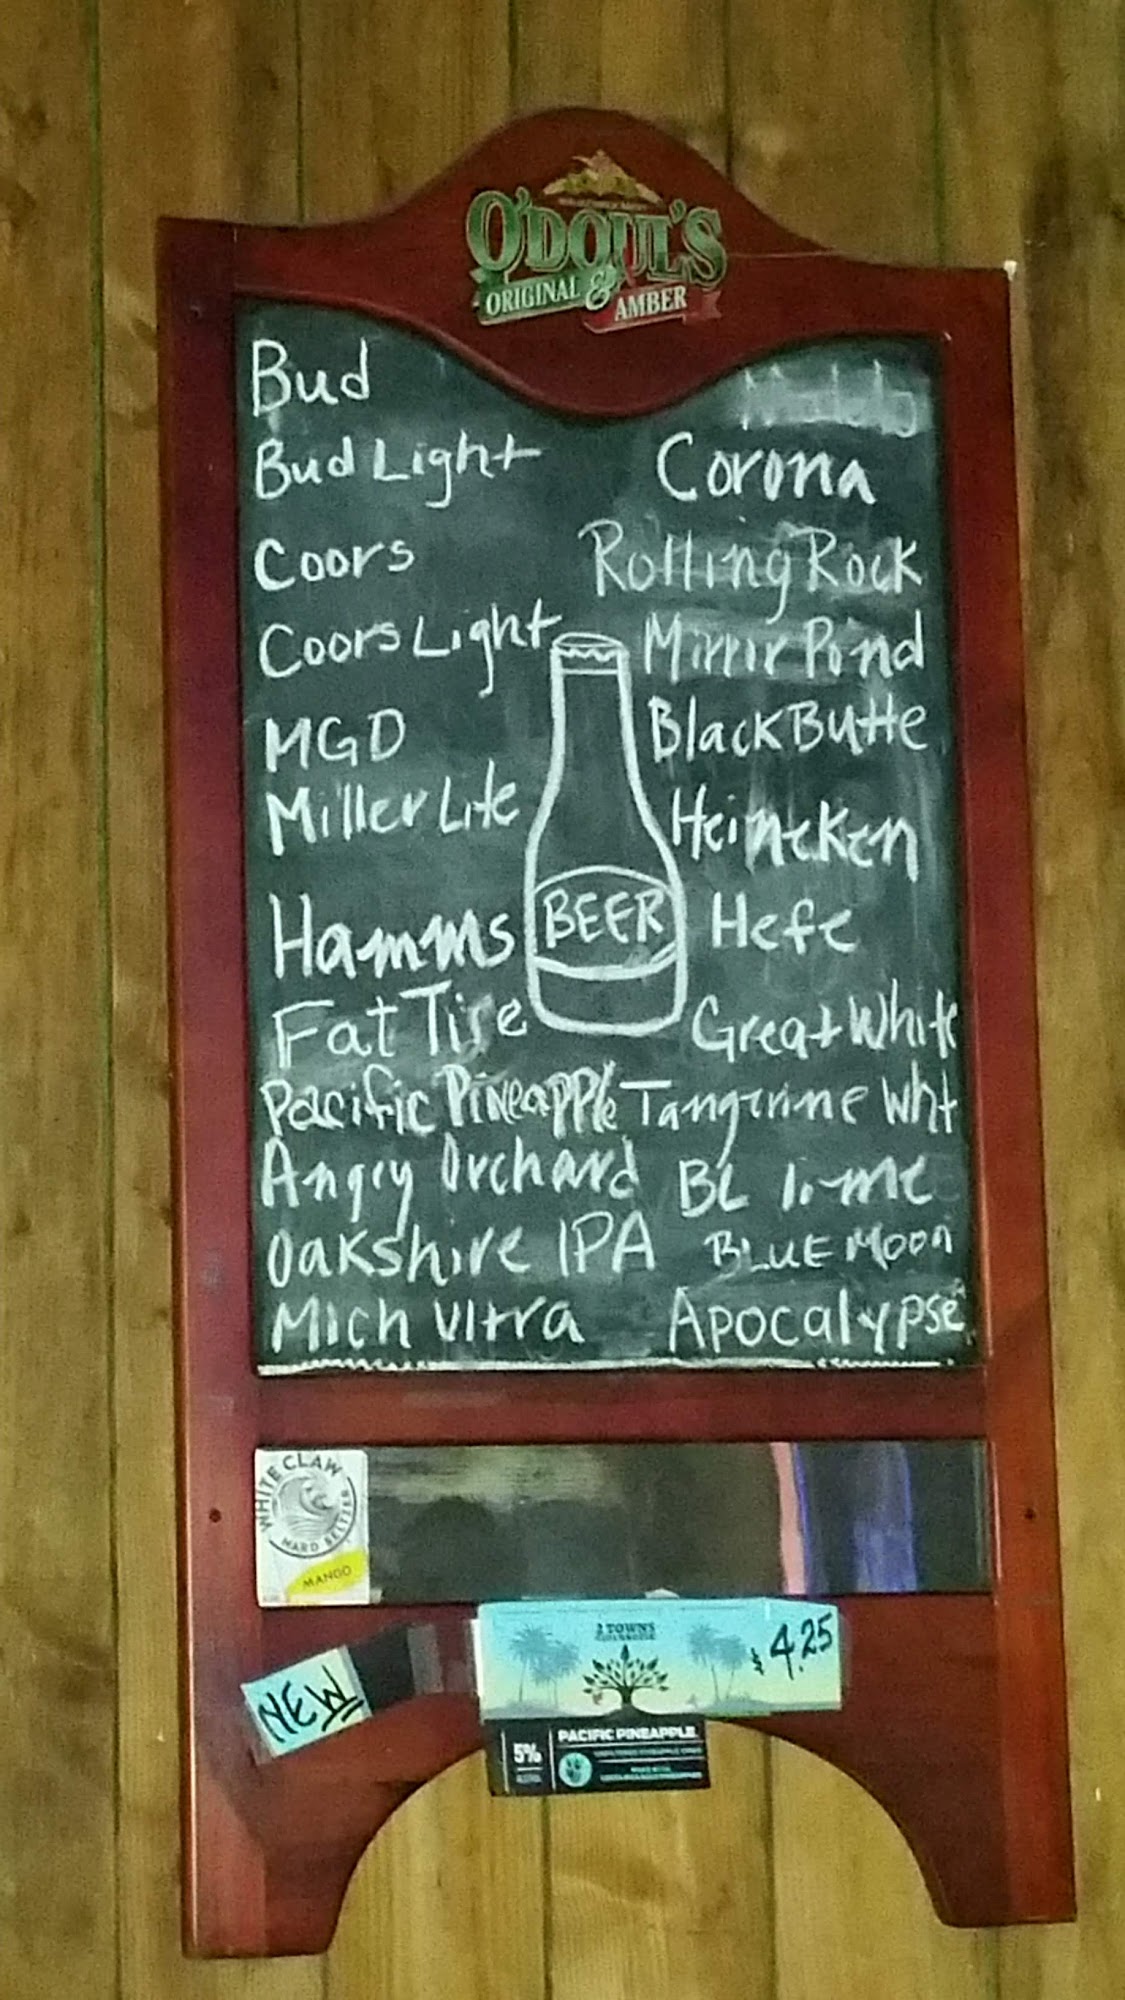 O'DOUL'S
ORIGINAL & AMBER
Bud
Bud Light
Coors
Coors Light
MGD
Miller Lite
Hamms
Fat Tire
Pacific Pineapple
Angry Orchard
Oakshire IPA
Mich Ultra
Corona
Rolling Rock
Mirror Pond
Black Butte
Heineken
Hefe
Great White
Tangerine Wht
BL lime
BLUE MOON
Apocalypse
BEER
WHITE CLAW
HARD SELTZER
MANGO
NEW
2 TOWNS
CIDERHOUSE
$4.25
5%
PACIFIC PINEAPPLE